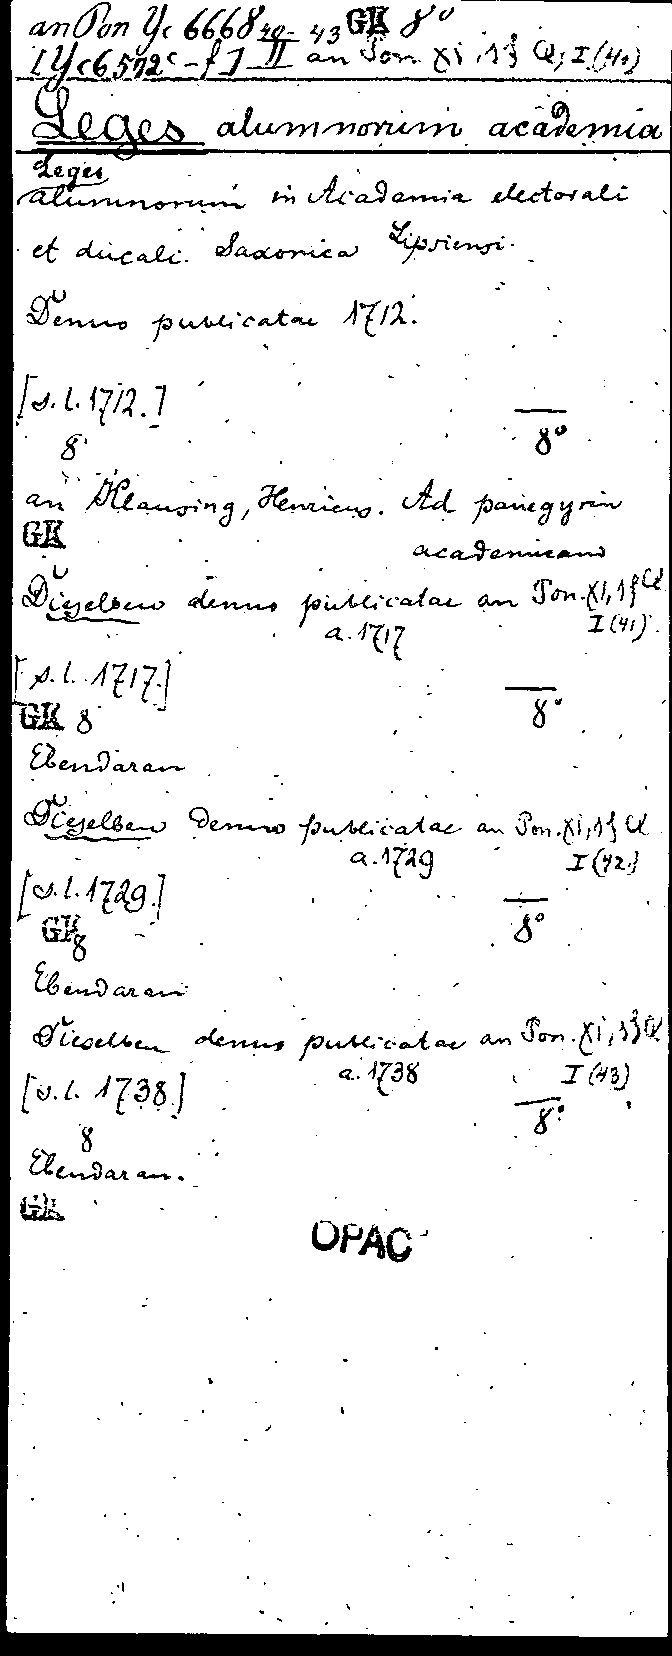 an Pon Yc 6668 40-43 GK 8°
[Yc 6572 c-f] II an Pon. XI, 13 Q, I (41)
Leges alumnorum academia
Leges
alumnorum in Academia electorali
et ducali Saxonica Lipsiensi.
Denuo publicatae 1712.
[s. l. 1712.]
8 8°
an Klausing, Henricus. Ad panegyrin
GK academicam
Dieselben denuo publicatae an Pon. XI, 13 Q
a. 1717 I (41)
[s. l. 1717.]
GK 8 8°
Ebendaran
Dieselben denuo publicatae an Pon. XI, 13 Q
a. 1729 I (42)
[s. l. 1729.]
GK 8 8°
Ebendaran
Dieselben denuo publicatae an Pon. XI, 13 Q
a. 1738 I (43)
[s. l. 1738.]
8 8°
Ebendaran.
GK
OPAC